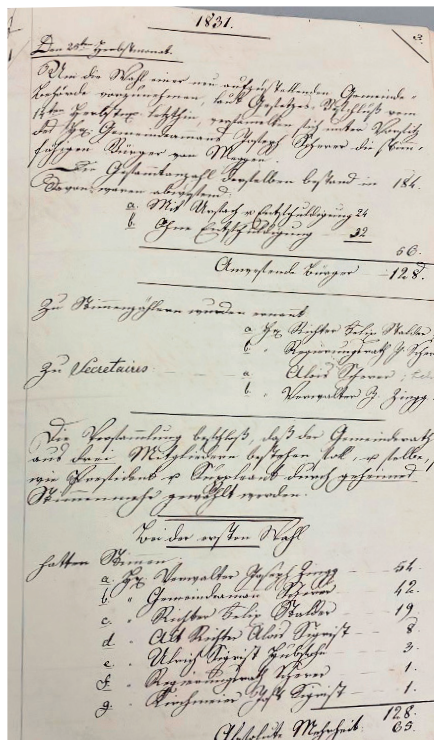 1831.
3.
Den 25ten Herbstmonat.
Um die Wahl einer neu aufzustellenden Gemeinde-
behörde vorzunehmen, laut Gesetzes-Beschluß vom
ten Herbstm. letzthin, versammelten sich unter Vorsitz
des Hr. Gemeindeamman Joseph Scherer die stimm-
fähigen Bürger von Meggen.
Die Gesamtanzahl derselben bestand in 184.
Davon waren abwesend:
a. Mit Ursach u Entschuldigung 24
b. Ohne Entschuldigung 32
56.
Anwesende Bürger 128.
Zu Stimmenzählern wurden ernent
a. Hr. Richter Felix Stalder
b. " Regierungsrath J. Scher
Zu Secretairs a. Alois Scherer
b. " Verwalter J. Zingg.
Die Versammlung beschloß, daß der Gemeinderath
aus drei Mitgliedern bestehen soll, u selbe,
wie President u Suppleant durch geheimes
Stimmenmehr gewählt werden.
Bei der ersten Wahl
hatten Stimmen
a. Hr. Verwalter Joseph Zingg — 54.
b. " Gemeindeaman Scherer — 42.
c. " Richter Felix Stalder — 19.
d. " Alt Richter Alois Sigrist — 8
e. " Ulrich Sigrist — 3.
f. " Regierungsrath Scherer — 1.
g. " Kirchmeier Sigrist — 1.
128.
Absolute Mehrheit. 65.